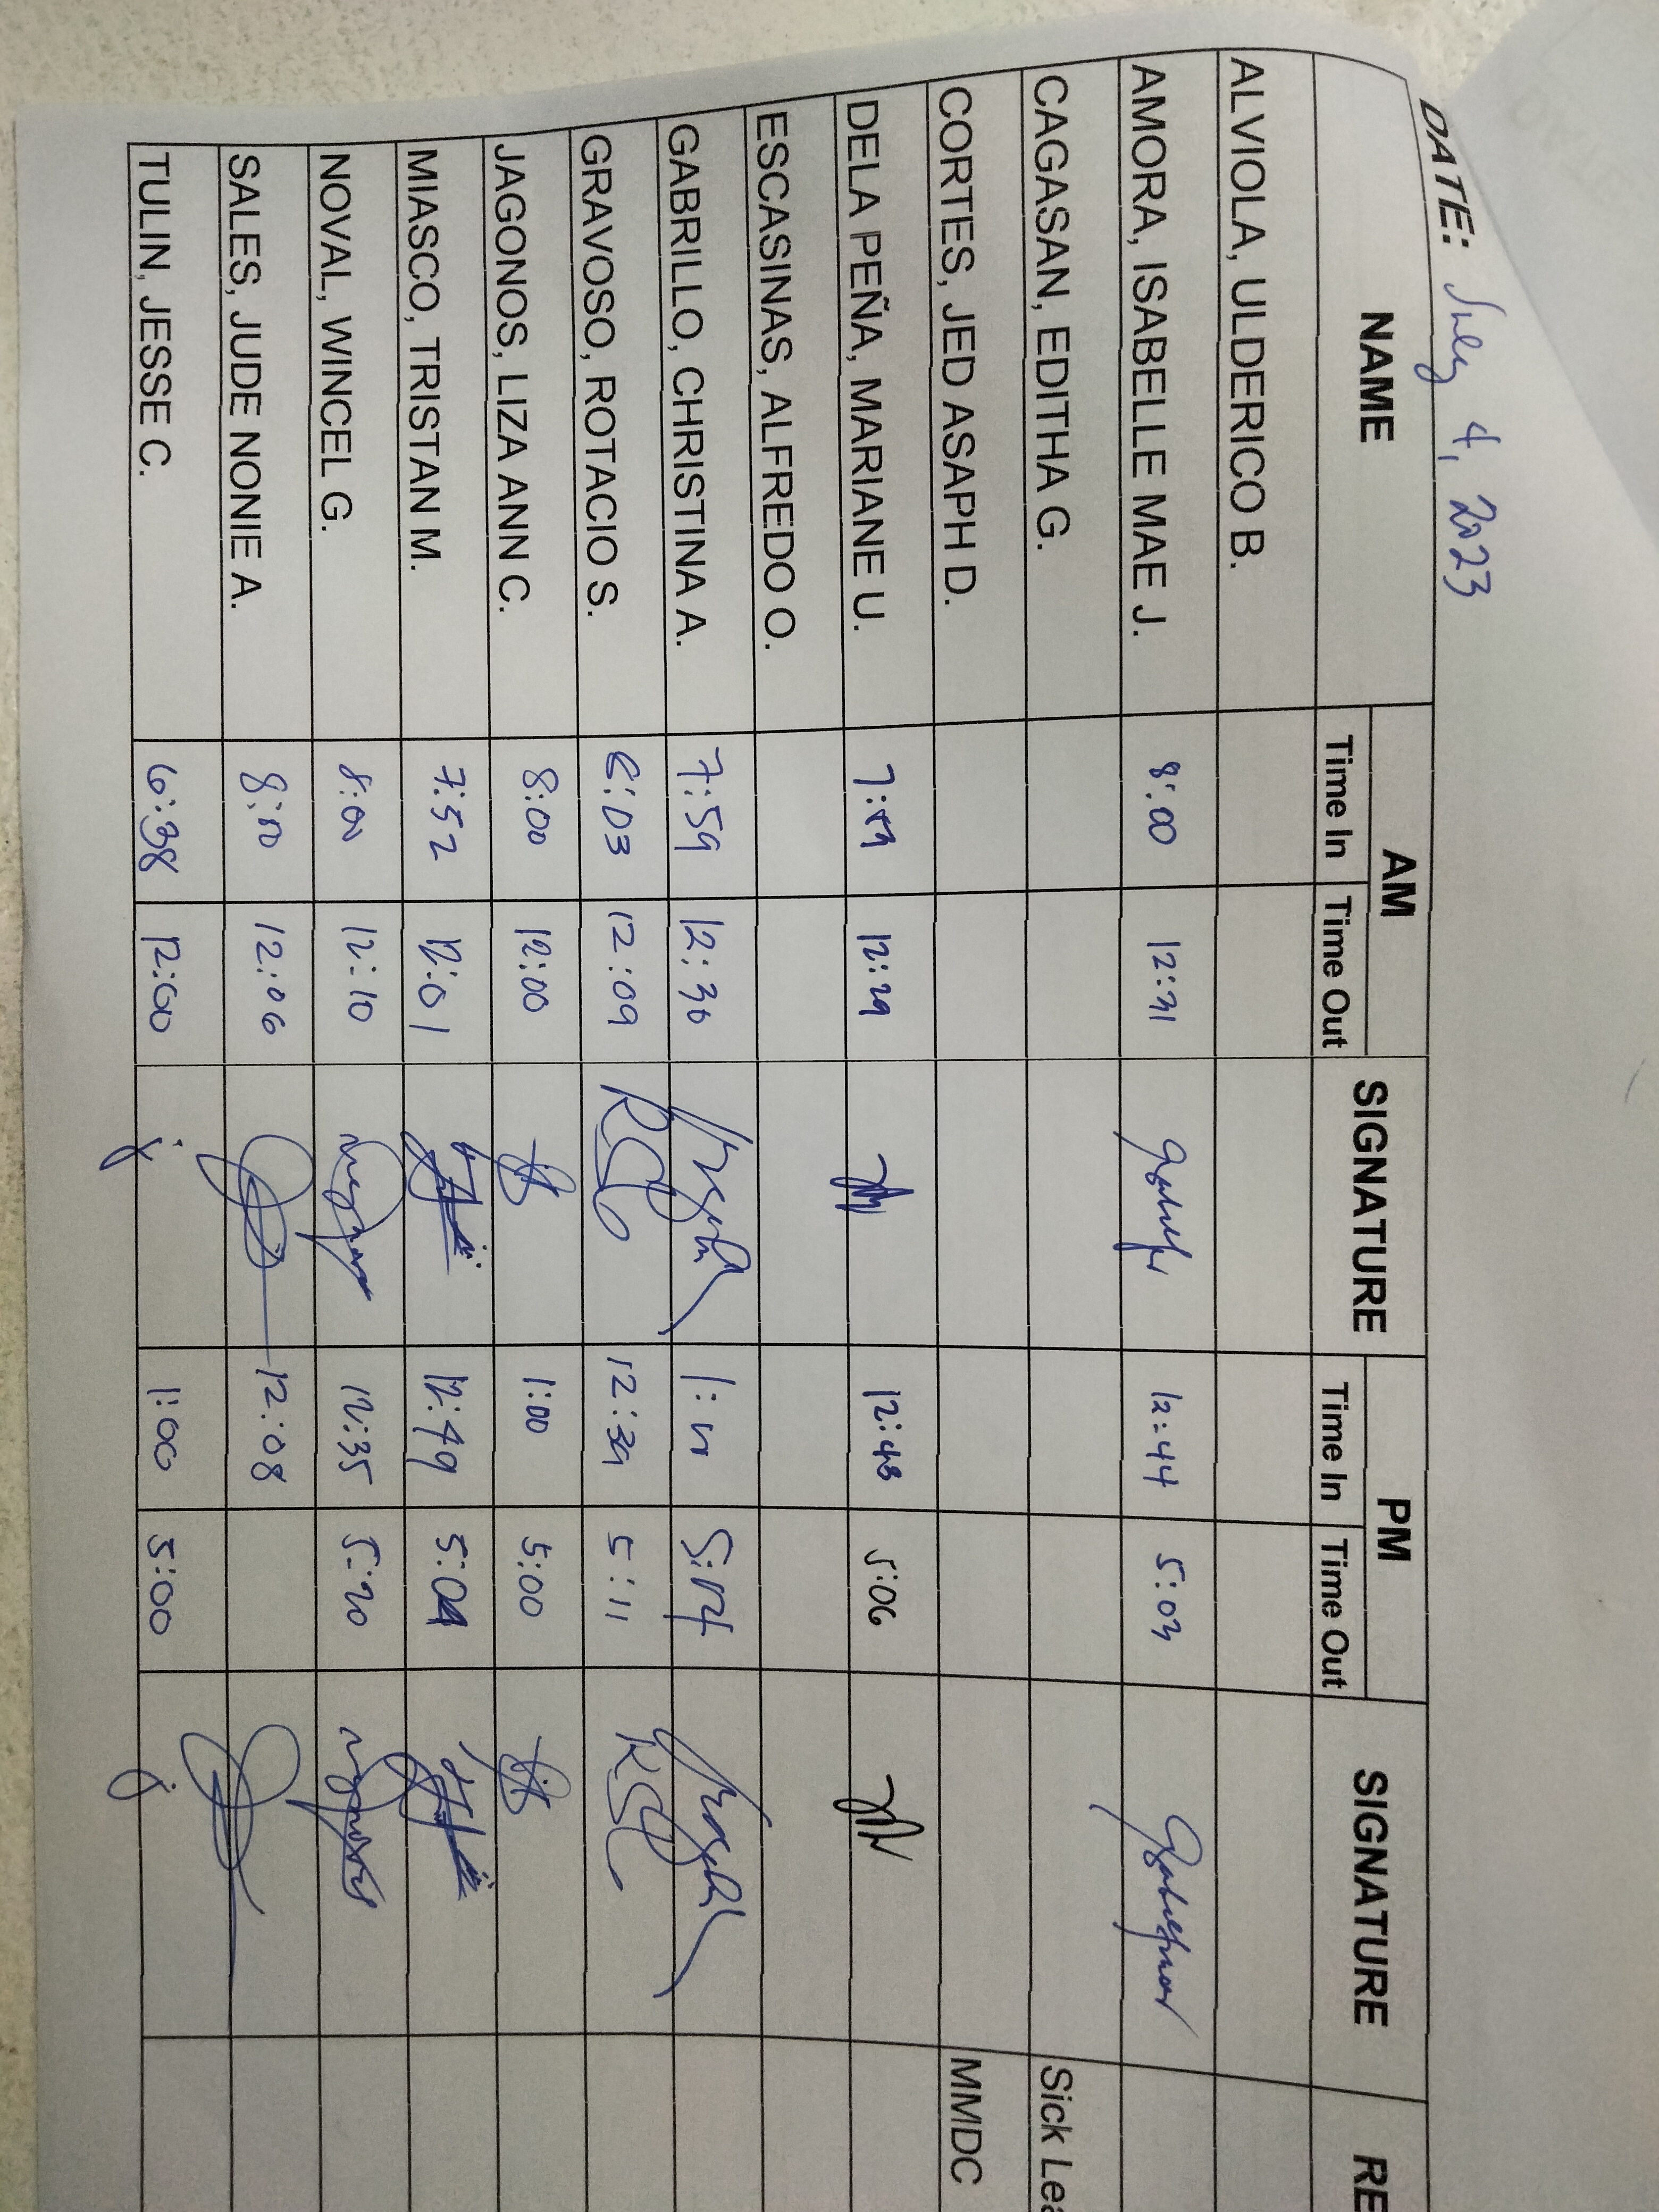 DATE: July 4, 2023
NAME AM SIGNATURE PM SIGNATURE RE
Time In Time Out Time In Time Out
ALVIOLA, ULDERICO B.
AMORA, ISABELLE MAE J. 8:00 12:31 12:44 5:03
CAGASAN, EDITHA G. Sick Lea
CORTES, JED ASAPH D. MMDC
DELA PEÑA, MARIANE U. 12:29 12:48 5:06
ESCASINAS, ALFREDO O.
GABRILLO, CHRISTINA A. 7:59 12:30
GRAVOSO, ROTACIO S. 6:03 12:09 12:39 5:11
JAGONOS, LIZA ANN C. 8:00 12:00 1:00 5:00
MIASCO, TRISTAN M. 7:52 12:01 12:49
NOVAL, WINCEL G. 8:00 12:10 12:35 5:20
SALES, JUDE NONIE A. 8:00 12:06 12:08
TULIN, JESSE C. 6:38 12:00 1:00 5:00